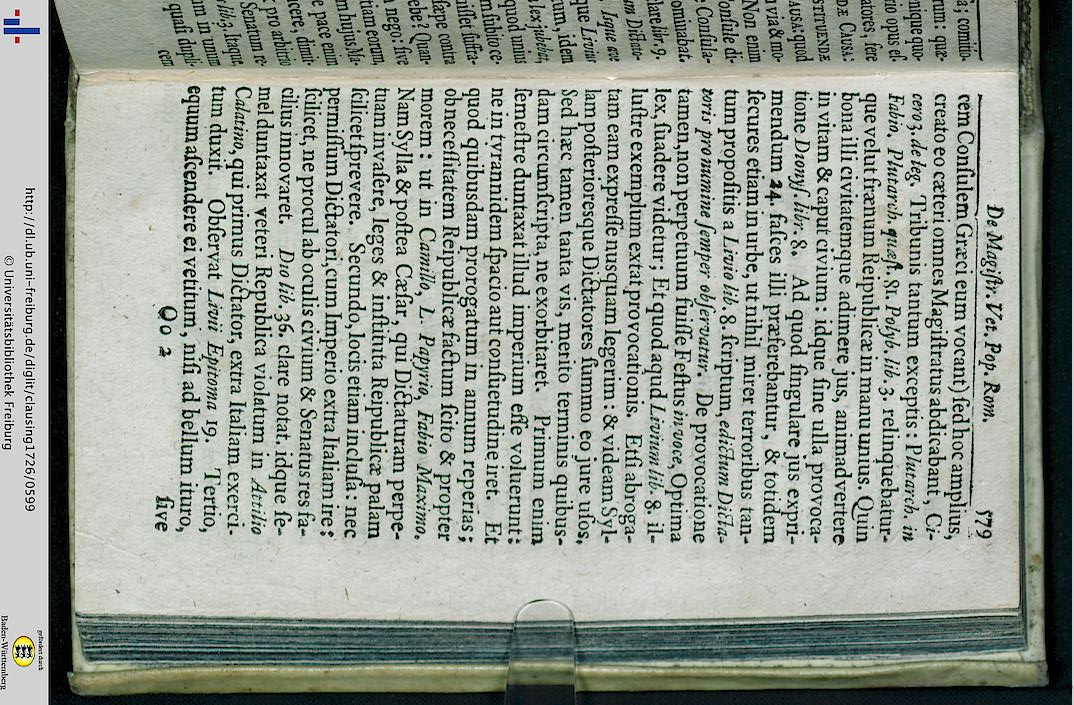 De Magiſtr. Vet. Pop. Rom. 579
cem Conſulem Græci eum vocant) ſed hoc amplius,
creato eo cæteri omnes Magiſtratus abdicabant, Ci-
cero 3. de leg. Tribunis tantum exceptis: Plutarch. in
Fabio, Plutarch. quæſt. 81. Polyb. lib. 3. relinquebatur-
que velut fræni Reipublicæ in manu unius. Quin
bona illi civitatemque adimere jus, animadvertere
in vitam & caput civium: idque ſine ulla provoca-
tione Dionyſ. libr. 8. Ad quod ſingulare jus expri-
mendum 24. faſces illi præferebantur, & totidem
ſecures etiam in urbe, ut nihil mirer terroribus tan-
tum propoſitis a Livio lib. 8. ſcriptum, edictum Dicta-
toris pro numine ſemper obſervatur. De provocatione
tamen, non perpetuum fuiſſe Feſtus in voce, Optima
lex, ſuadere videtur; Et quod aqud Livium lib. 8. il-
luſtre exemplum extat provocationis. Etſi abroga-
tam eam expreſſe nusquam legerim: & videam Syl-
lam poſterioresque Dictatores ſummo eo jure uſos.
Sed hæc tamen tanta vis, merito terminis quibus-
dam circumſcripta, ne exorbitaret. Primum enim
ſemeſtre duntaxat illud imperium eſſe voluerunt:
ne in tyrannidem ſpacio aut conſuetudine iret. Et
quod quibusdam prorogatum in annum reperias;
ob neceſſitatem Reipublicæ factum ſcito & propter
morem: ut in Camillo, L. Papyrio, Fabio Maximo.
Nam Sylla & poſtea Cæſar, qui Dictaturam perpe-
tuam invaſere, leges & inſtituta Reipublicæ palam
ſcilicet ſprevere. Secundo, locis etiam incluſa: nec
permiſſum Dictatori, cum Imperio extra Italiam ire:
ſcilicet, ne procul ab oculis civium & Senatus res fa-
cilius innovaret. Dio lib. 36. clare notat. idque ſe-
mel duntaxat veteri Republica violatum in Atrilio
Calatino, qui primus Dictator, extra Italiam exerci-
tum duxit. Obſervat Livii Epitoma 19. Tertio,
equum aſcendere ei vetitum, niſi ad bellum ituro,
Oo 2 ſive
http://dl.ub.uni-freiburg.de/diglit/clausing1726/0599
© Universitätsbibliothek Freiburg
gefördert durch
Baden-Württemberg